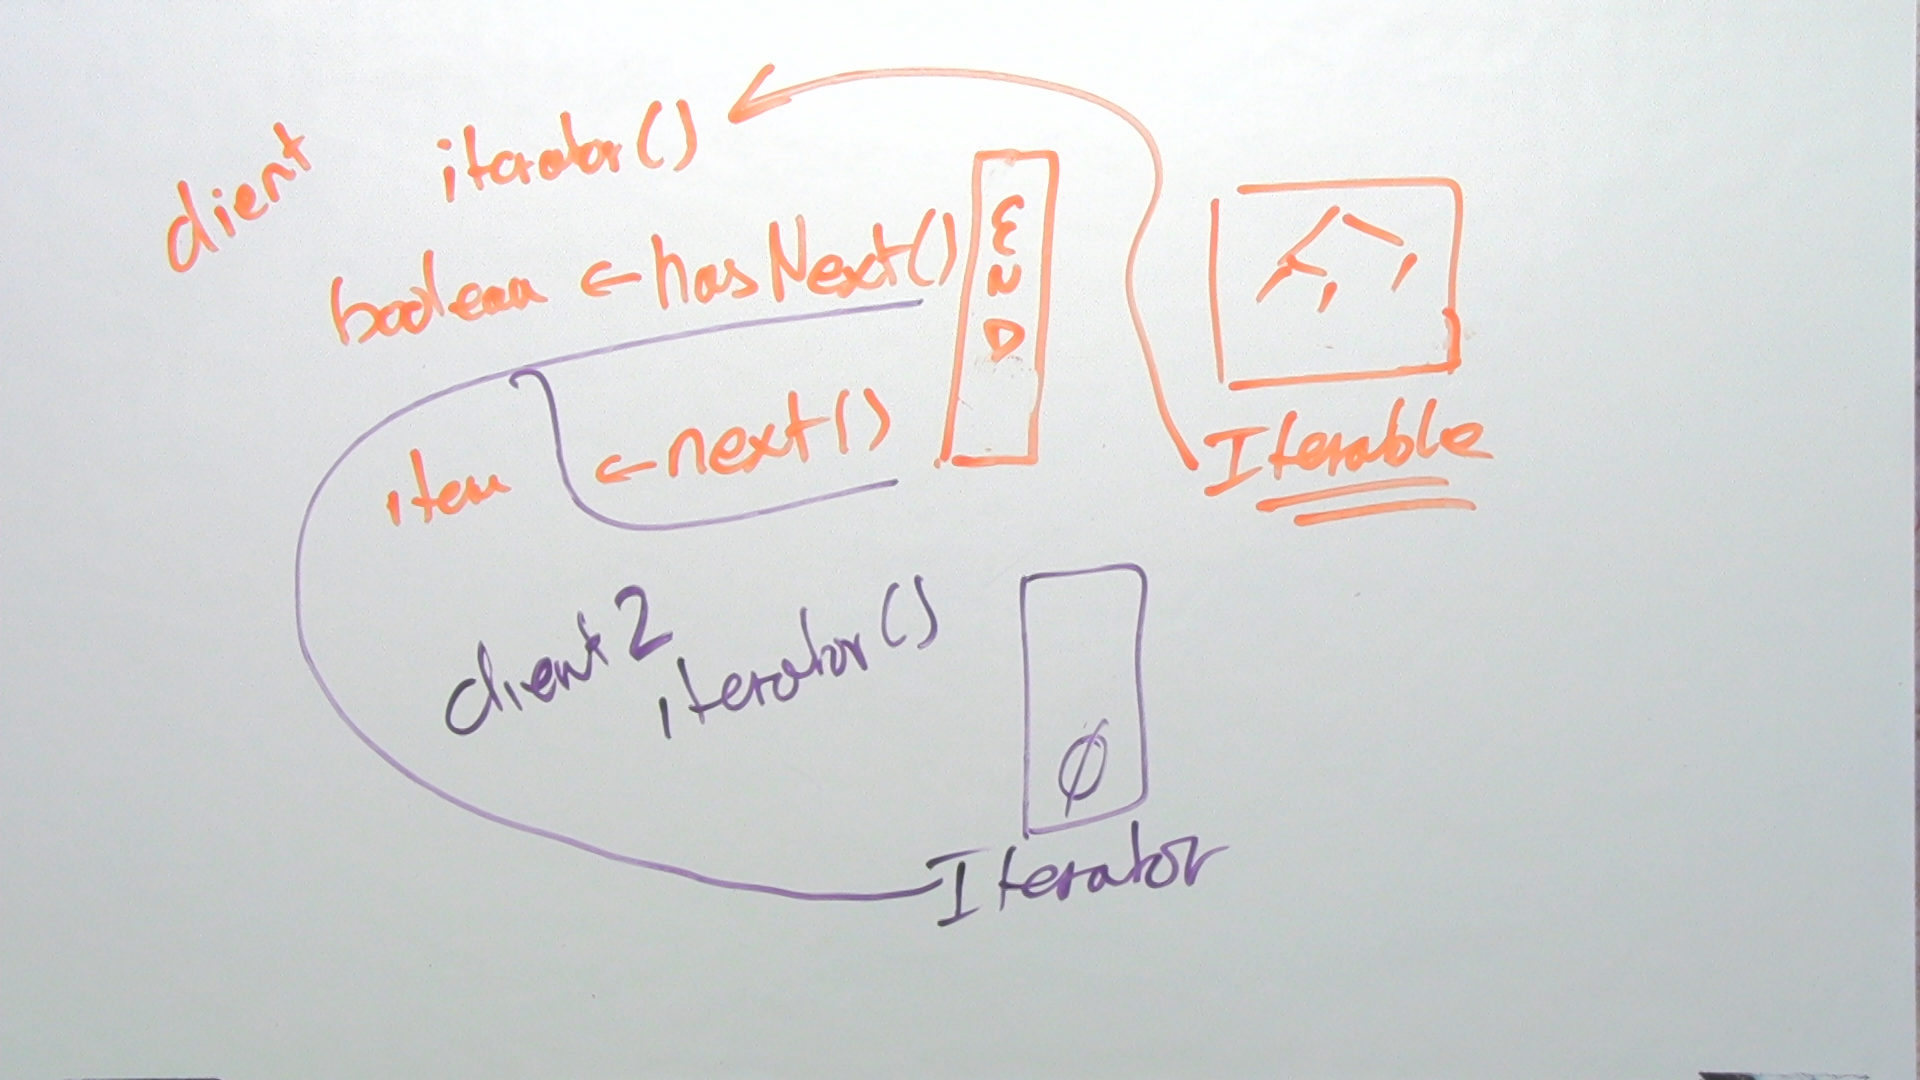 client iterator()
boolean ← hasNext()
END
item ← next()
Iterable
client 2
iterator()
Ø
Iterator